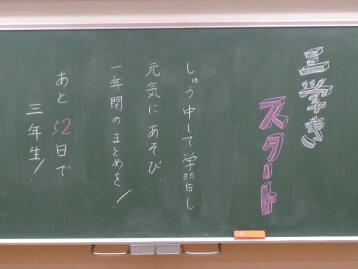 三学き
スタート
しゅう中して学習し
元気にあそび
一年間のまとめを!
あと52日で
三年生!